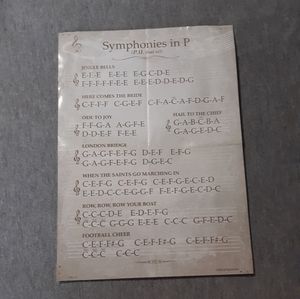 Symphonies in P
JINGLE BELLS
E-E-E E-E-E E-G-C-D-E
F-F-F-F-F-E-E E-E-D-D-E-D-G
HERE COMES THE BRIDE
C-F-F-F C-G-E-F C-F-A-C-A-F-D-G-A-F
ODE TO JOY
F-F-G-A A-G-F-E
D-D-E-F F-E-E
HAIL TO THE CHIEF
G-A-B-C-B-A
G-A-G-E-D-C
LONDON BRIDGE
G-A-G-F-E-F-G D-E-F E-F-G
G-A-G-F-E-F-G D-G-E-C
WHEN THE SAINTS GO MARCHING IN
C-E-F-G C-E-F-G C-E-F-G-E-C-E-D
E-E-D-C-C-E-G-G-F E-F-G-E-C-D-C
ROW, ROW, ROW YOUR BOAT
C-C-C-D-E E-D-E-F-G
C-C-C G-G-G E-E-E C-C-C G-F-E-D-C
FOOTBALL CHEER
C-E-F-F♯-G C-E-F-F♯-G C-E-F-F♯-G
C-C-C C-C-C